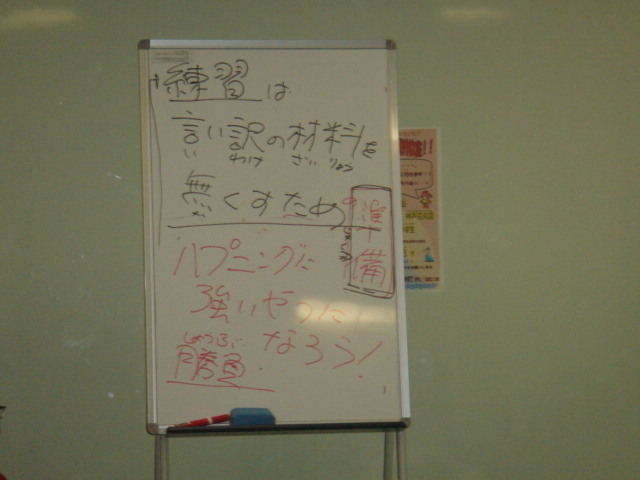 練習は
言い訳の材料を
い わけ ざいりょう
無くすための
準備
ハプニングに
強いやつに
しょうぶ
勝負 なろう!